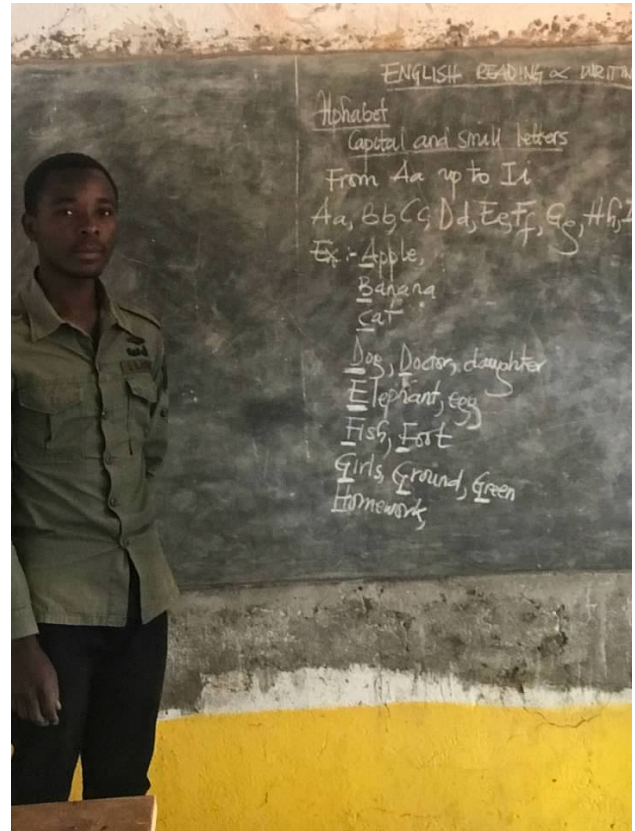 ENGLISH READING & WRITIN
Alphabet
Capital and small letters
From Aa up to Ii
Aa, Bb, Cc, Dd, Ee, Ff, Gg, Hh, I
Ex:- Apple,
Banana
Cat
Dog, Doctor, daughter
Elephant, egg
Fish, Foot
Girls, Ground, Green
Homework,